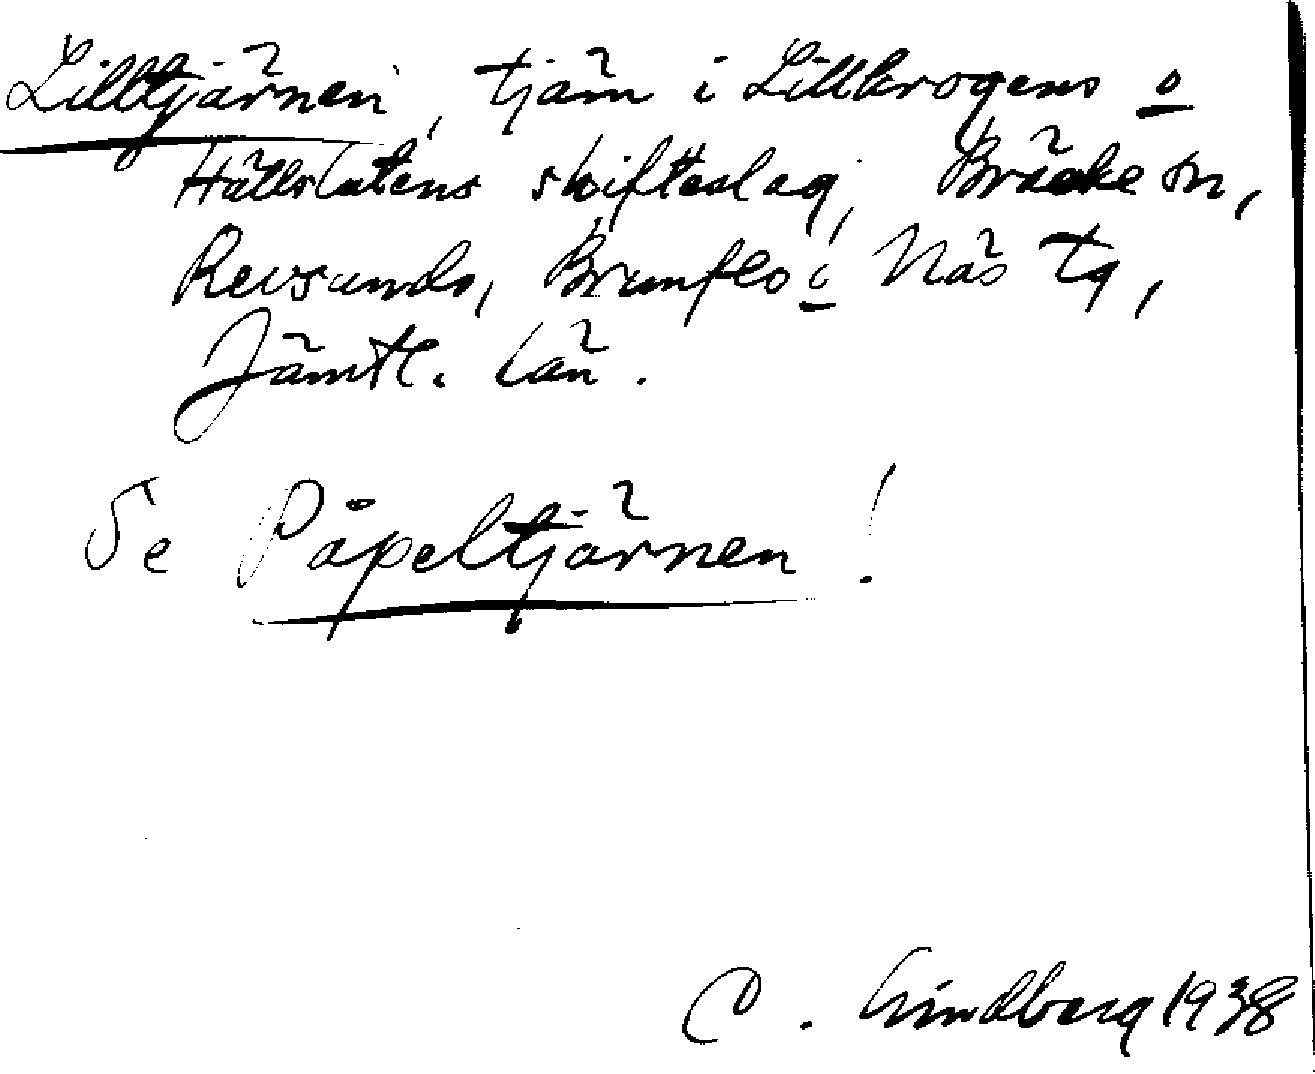 Lilltjärnen, tjärn i Lillkrogens o
Hällslåtens skifteslag, Bräcke sn,
Revsunds, Brunflo o Näs tg,
Jämtl. län.
Se Påpeltjärnen!
C. Lindberg 1938